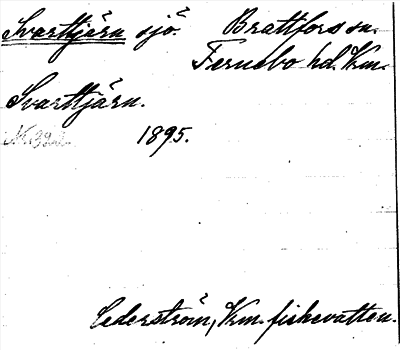 Svarttjärn sjö. Brattfors sn.
Fernebo hd. Vrm.
Svarttjärn.
1895.
Cederström, Vrm. fiskevatten.